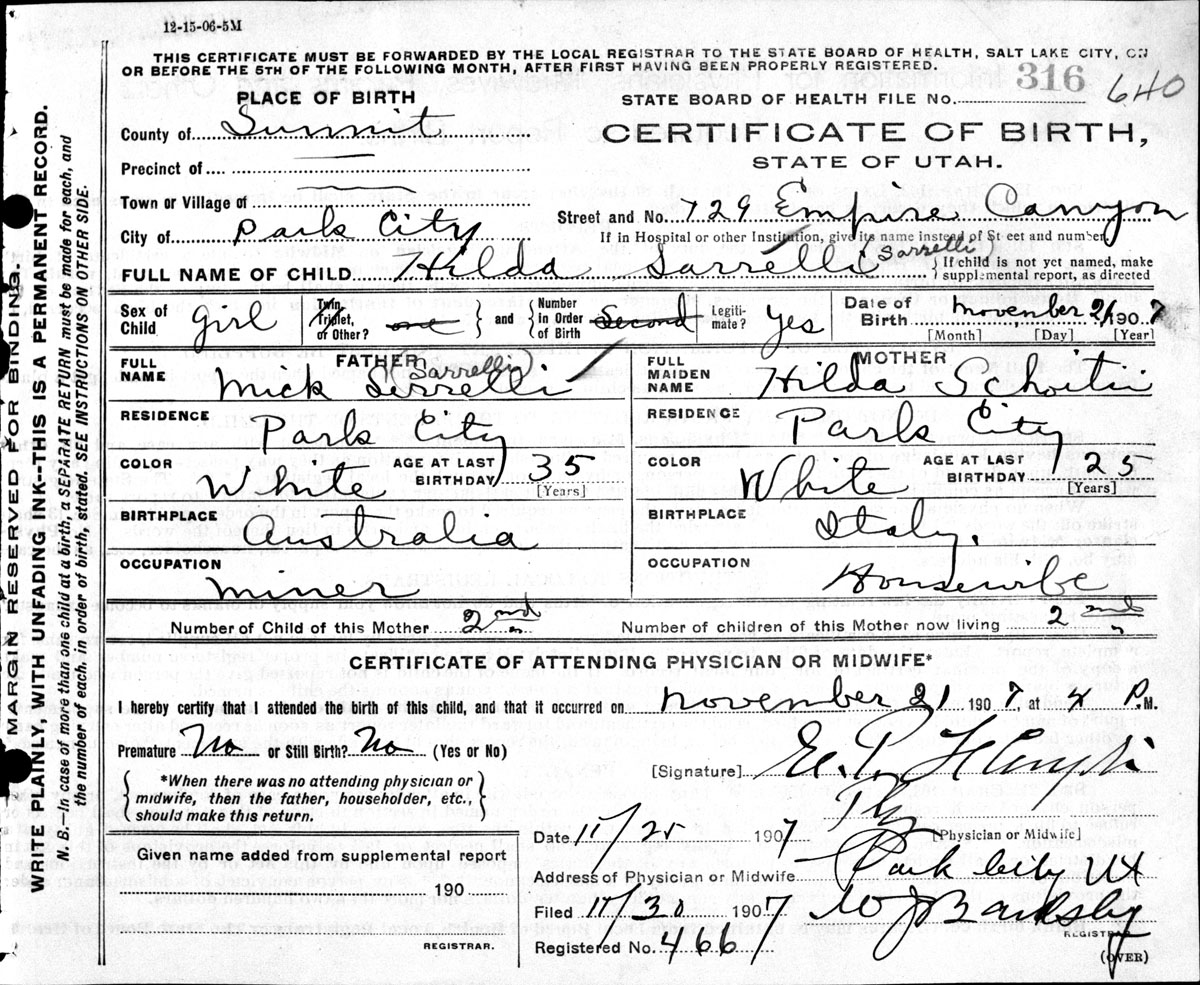 12-15-06-5M
THIS CERTIFICATE MUST BE FORWARDED BY THE LOCAL REGISTRAR TO THE STATE BOARD OF HEALTH, SALT LAKE CITY, ON
OR BEFORE THE 5TH OF THE FOLLOWING MONTH, AFTER FIRST HAVING BEEN PROPERLY REGISTERED.
PLACE OF BIRTH
STATE BOARD OF HEALTH FILE No. 316 640
County of Summit
CERTIFICATE OF BIRTH,
Precinct of
STATE OF UTAH.
Town or Village of
Street and No. 729 Empire Canyon
City of Park City
If in Hospital or other Institution, give its name instead of Street and number.
FULL NAME OF CHILD. Hilda Sarrelli Sarrelli
If child is not yet named, make supplemental report, as directed
Sex of Child girl
Twin, Triplet, or Other? one and Number in Order of Birth Second
Legitimate? yes
Date of Birth November 21 1907
[Month] [Day] [Year]
FATHER
FULL NAME Mick Serrelli Sarrelli
MOTHER
FULL MAIDEN NAME Hilda
RESIDENCE Park City
RESIDENCE Park City
COLOR White AGE AT LAST BIRTHDAY 35 [Years]
COLOR White AGE AT LAST BIRTHDAY 25 [Years]
BIRTHPLACE Australia
BIRTHPLACE Italy.
OCCUPATION Miner
OCCUPATION Housewife
Number of Child of this Mother 2nd
Number of children of this Mother now living 2nd
CERTIFICATE OF ATTENDING PHYSICIAN OR MIDWIFE*
I hereby certify that I attended the birth of this child, and that it occurred on November 21 1907, at 4 P.M.
Premature No or Still Birth? No (Yes or No)
[Signature]
*When there was no attending physician or
midwife, then the father, householder, etc.,
should make this return.
[Physician or Midwife]
Date 11/25 1907
Given name added from supplemental report
Address of Physician or Midwife Park City Ut
190
Filed 11/30 1907
REGISTRAR.
REGISTRAR
Registered No. 4667
(OVER)
MARGIN RESERVED FOR BINDING.
WRITE PLAINLY, WITH UNFADING INK--THIS IS A PERMANENT RECORD.
N. B.—In case of more than one child at a birth, a SEPARATE RETURN must be made for each, and
the number of each, in order of birth, stated. SEE INSTRUCTIONS ON OTHER SIDE.